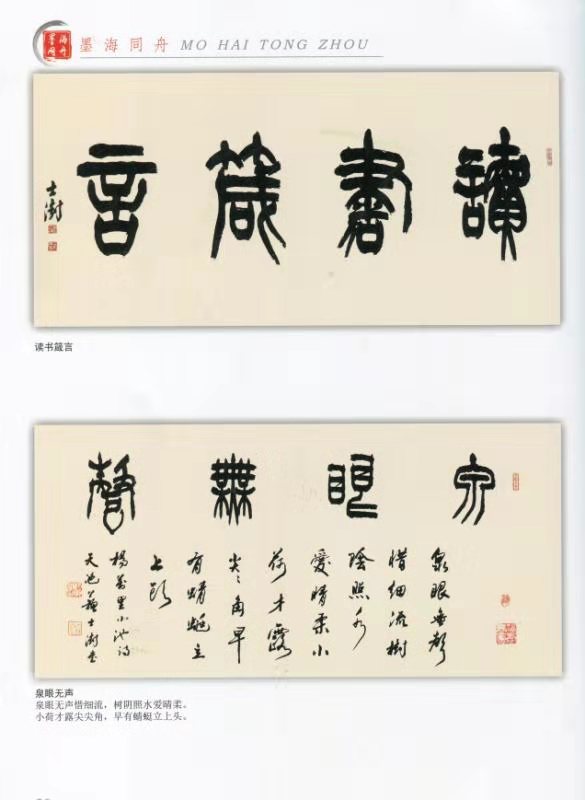 墨海同舟 MO HAI TONG ZHOU
讀書箴言
士澍
读书箴言
泉眼無聲
泉眼無聲
惜细流樹
陰照水
愛晴柔小
荷才露
尖尖角早
有蜻蜓立
上头
楊萬里小池詩
天池蘇士澍书
泉眼无声
泉眼无声惜细流，树阴照水爱晴柔。
小荷才露尖尖角，早有蜻蜓立上头。